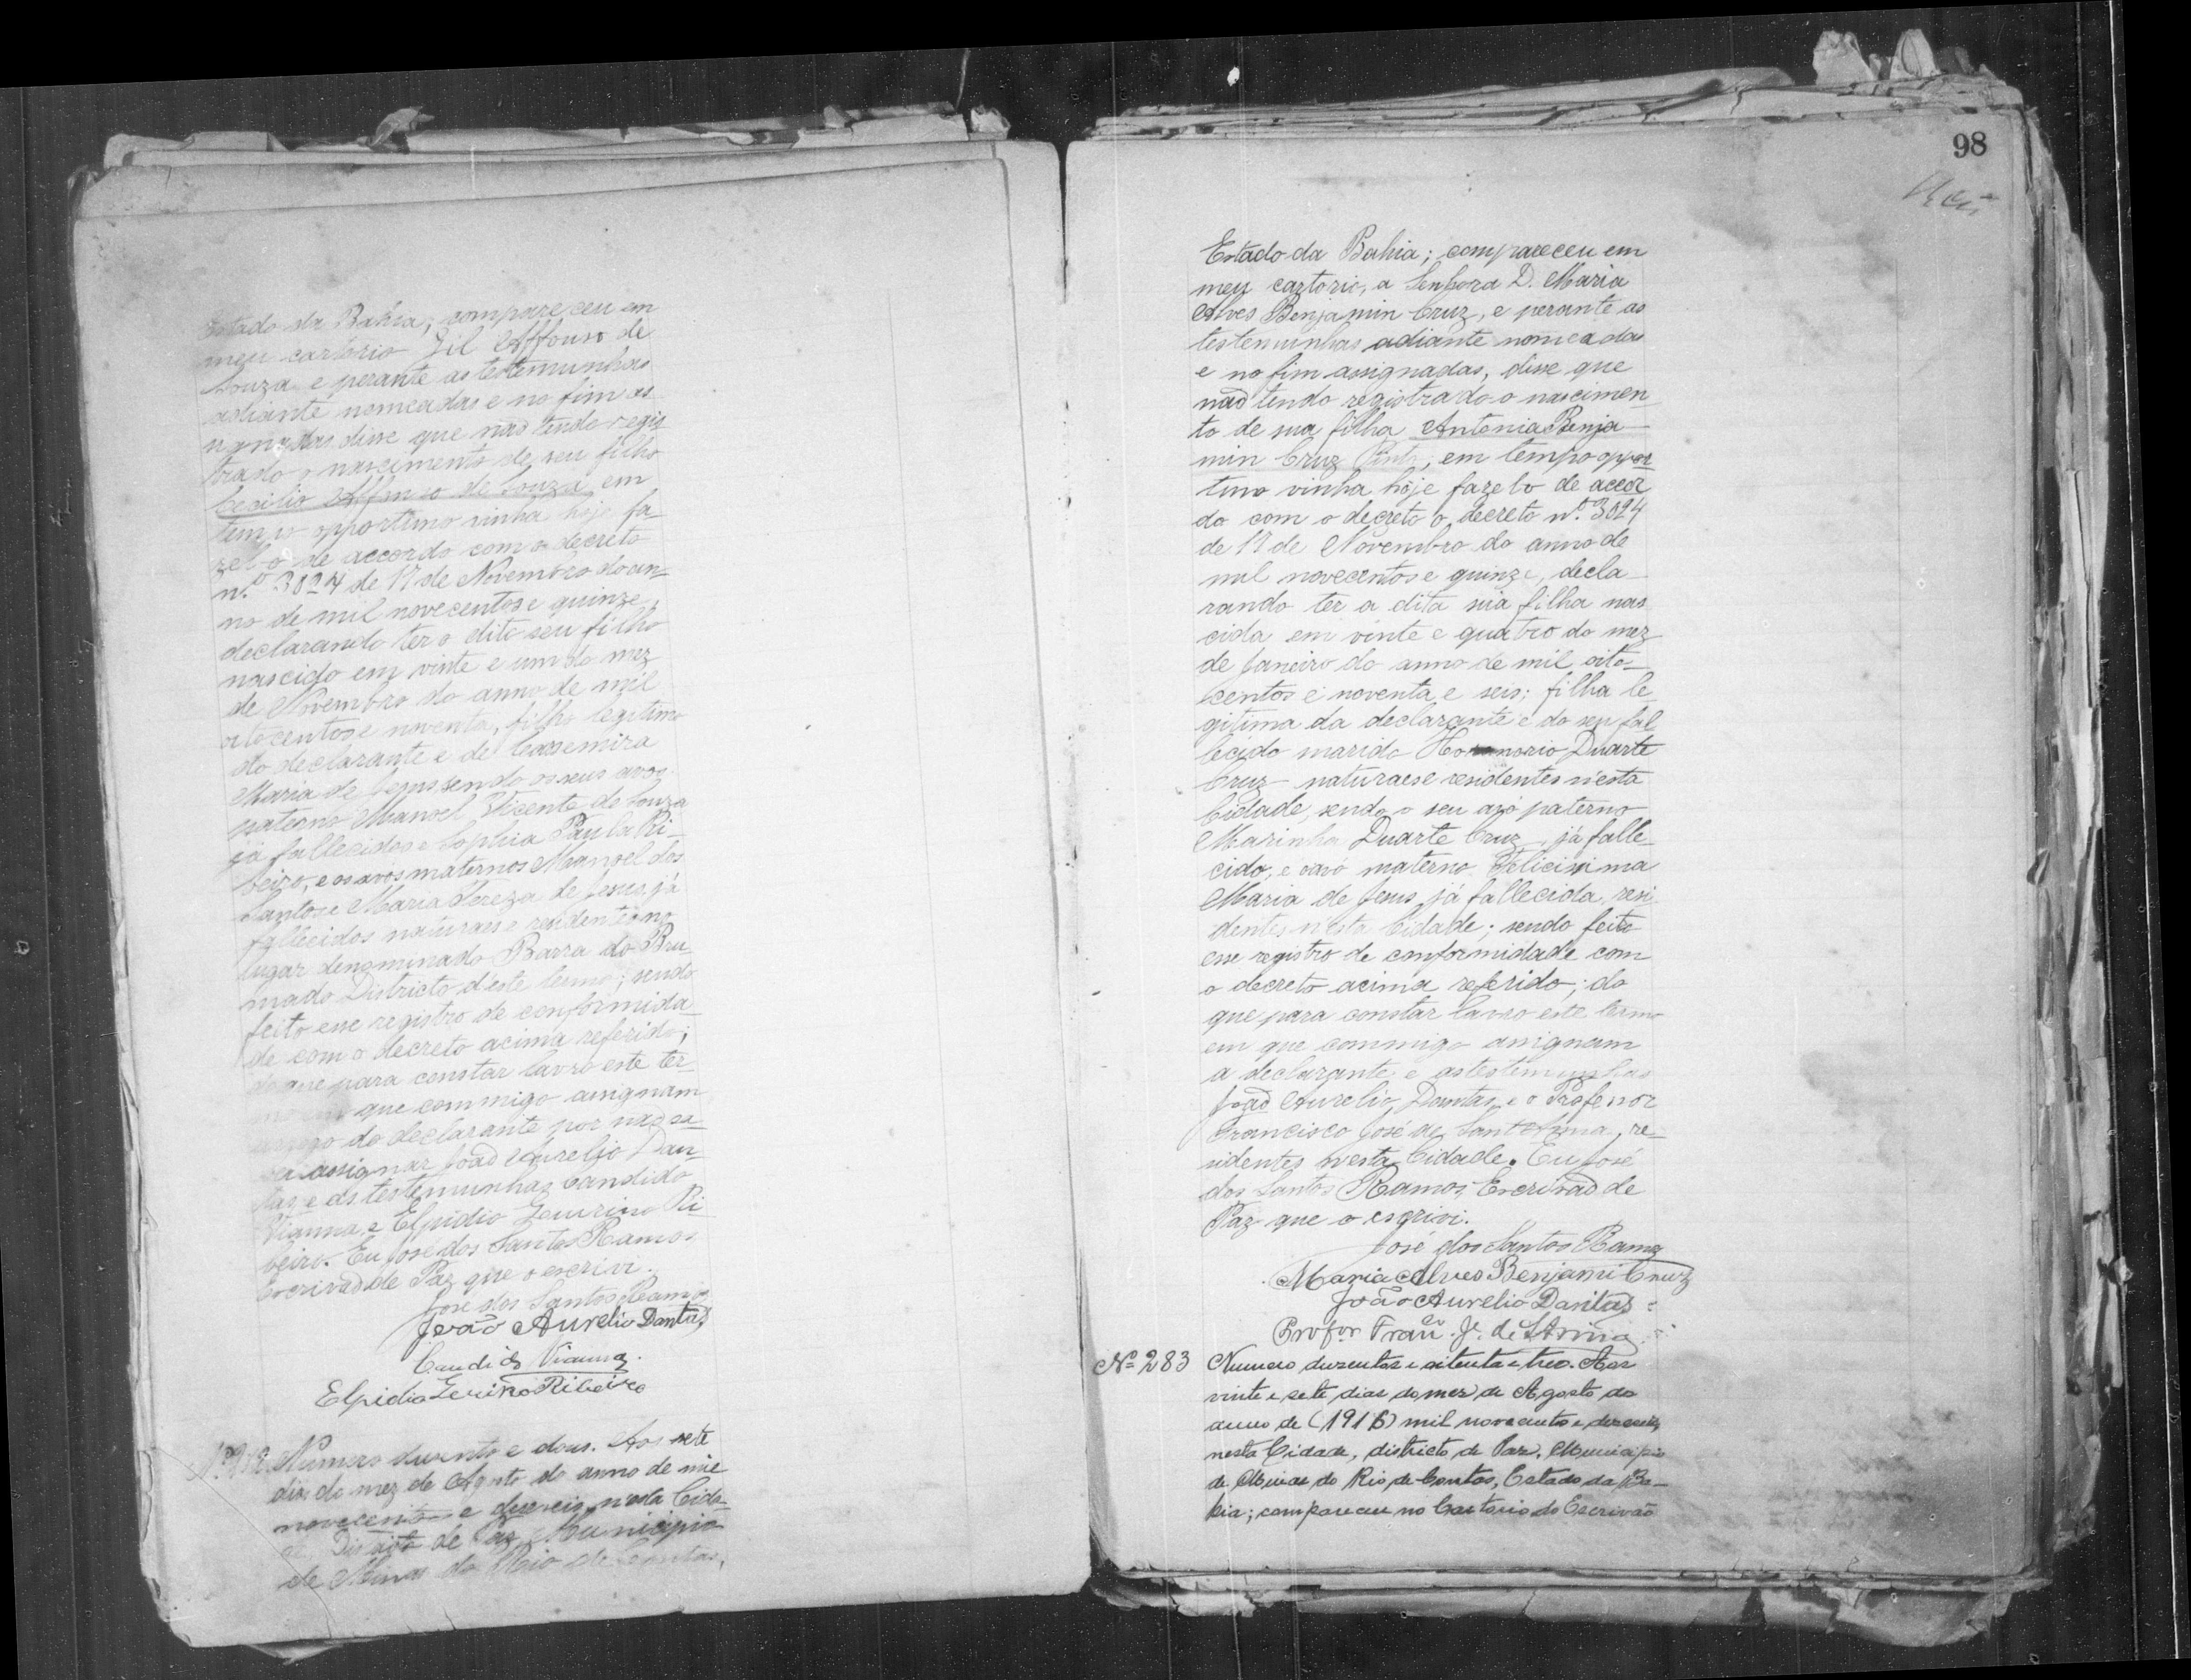 Estado da Bahia; compareceu em
meu cartorio Gil Affonso de
Souza e perante as testemunhas
adiante nomeadas e no fim as
signadas disse que não tendo regis
trado o nascimento de seu filho
Cecilio Affonso de Souza em
tempo opportuno vinha hoje fa-
zel-o de accordo com o decreto
n.º 3024 de 17 de Novembro do an-
no de mil novecentos e quinze,
declarando ter o dito seu filho
nascido em vinte e um do mez
de Novembro do anno de mil
oitocentos e noventa, filho legitimo
do declarante e de Cassemira
Maria de Jesus, sendo os seus avos
paterno Manoel Vicente de Souza
já fallecidos e Sophia Paula Ri-
beiro, e os avós maternos Manoel dos
Santos e Maria Tereza de Jesus, já
fallecidos naturaes e residentes no
lugar denominado Barra do Bru-
mado Districto d'este termo; sendo
feito esse registro de conformida-
de com o decreto acima referido;
do que para constar lavro este ter-
mo em que commigo assignam
a rogo do declarante por não sa-
ber assignar João Aurelio Dan-
tas e as testemunhas Candido
Vianna e Elpidio Zeurino Ri-
beiro. Eu José dos Santos Ramos
Escrivão de Paz que o escrivi.
José dos Santos Ramos
João Aurelio Dantas
Candido Vianna.
Elpidio Zeurino Ribeiro
Numero duzentos e dous. Aos sete
dias do mez de Agosto do anno de mil
novecentos e dezeseis, n'esta Cida-
de, Districto de Paz, Municipio
de Minas do Rio de Contas,
98
Estado da Bahia; compareceu em
meu cartorio, a Senhora D. Maria
Alves Benjamin Cruz, e perante as
testemunhas adiante nomeadas
e no fim assignadas, disse que
não tendo registrado o nascimen-
to de sua filha Antonia Benja-
min Cruz, em tempo oppor
tuno vinha hoje fazelo de accor
do com o decreto o decreto n.º 3024
de 17 de Novembro do anno de
mil novecentos e quinze, decla-
rando ter a dita sua filha nas
cida em vinte e quatro do mez
de Janeiro do anno de mil oito-
centos e noventa e seis; filha le
gitima da declarante e do seu fal
lecido marido Honorio Duarte
Cruz naturaes e residentes n'esta
Cidade, sendo o seu avó paterno
Marinho Duarte Cruz já falle-
cido, e o avó materno Felicissima
Maria de Jesus já fallecida, resi
dentes n'esta Cidade; sendo feito
esse registro de conformidade com
o decreto acima referido; do
que para constar lavro este termo
em que commigo assignam
a declarante e as testemunhas
João Aurelio Dantas e o Professor
Francisco José de Sant'Anna, re-
sidentes n'esta Cidade. Eu José
dos Santos Ramos Escrivão de
Paz que o escrivi.
José dos Santos Ramos
Maria Alves Benjami Cruz
João Aurelio Dantas
Profor Franco. Je. de S'Anna
Nº 283 Numero duzentos e oitenta e tres. Aos
vinte e sete dias do mez de Agosto do
anno de (1916) mil novecentos e dezeseis,
nesta Cidade, districto de Paz, Municipio
de Minas do Rio de Contas, Estado da Ba-
hia; compareceu no Cartorio do Escrivão